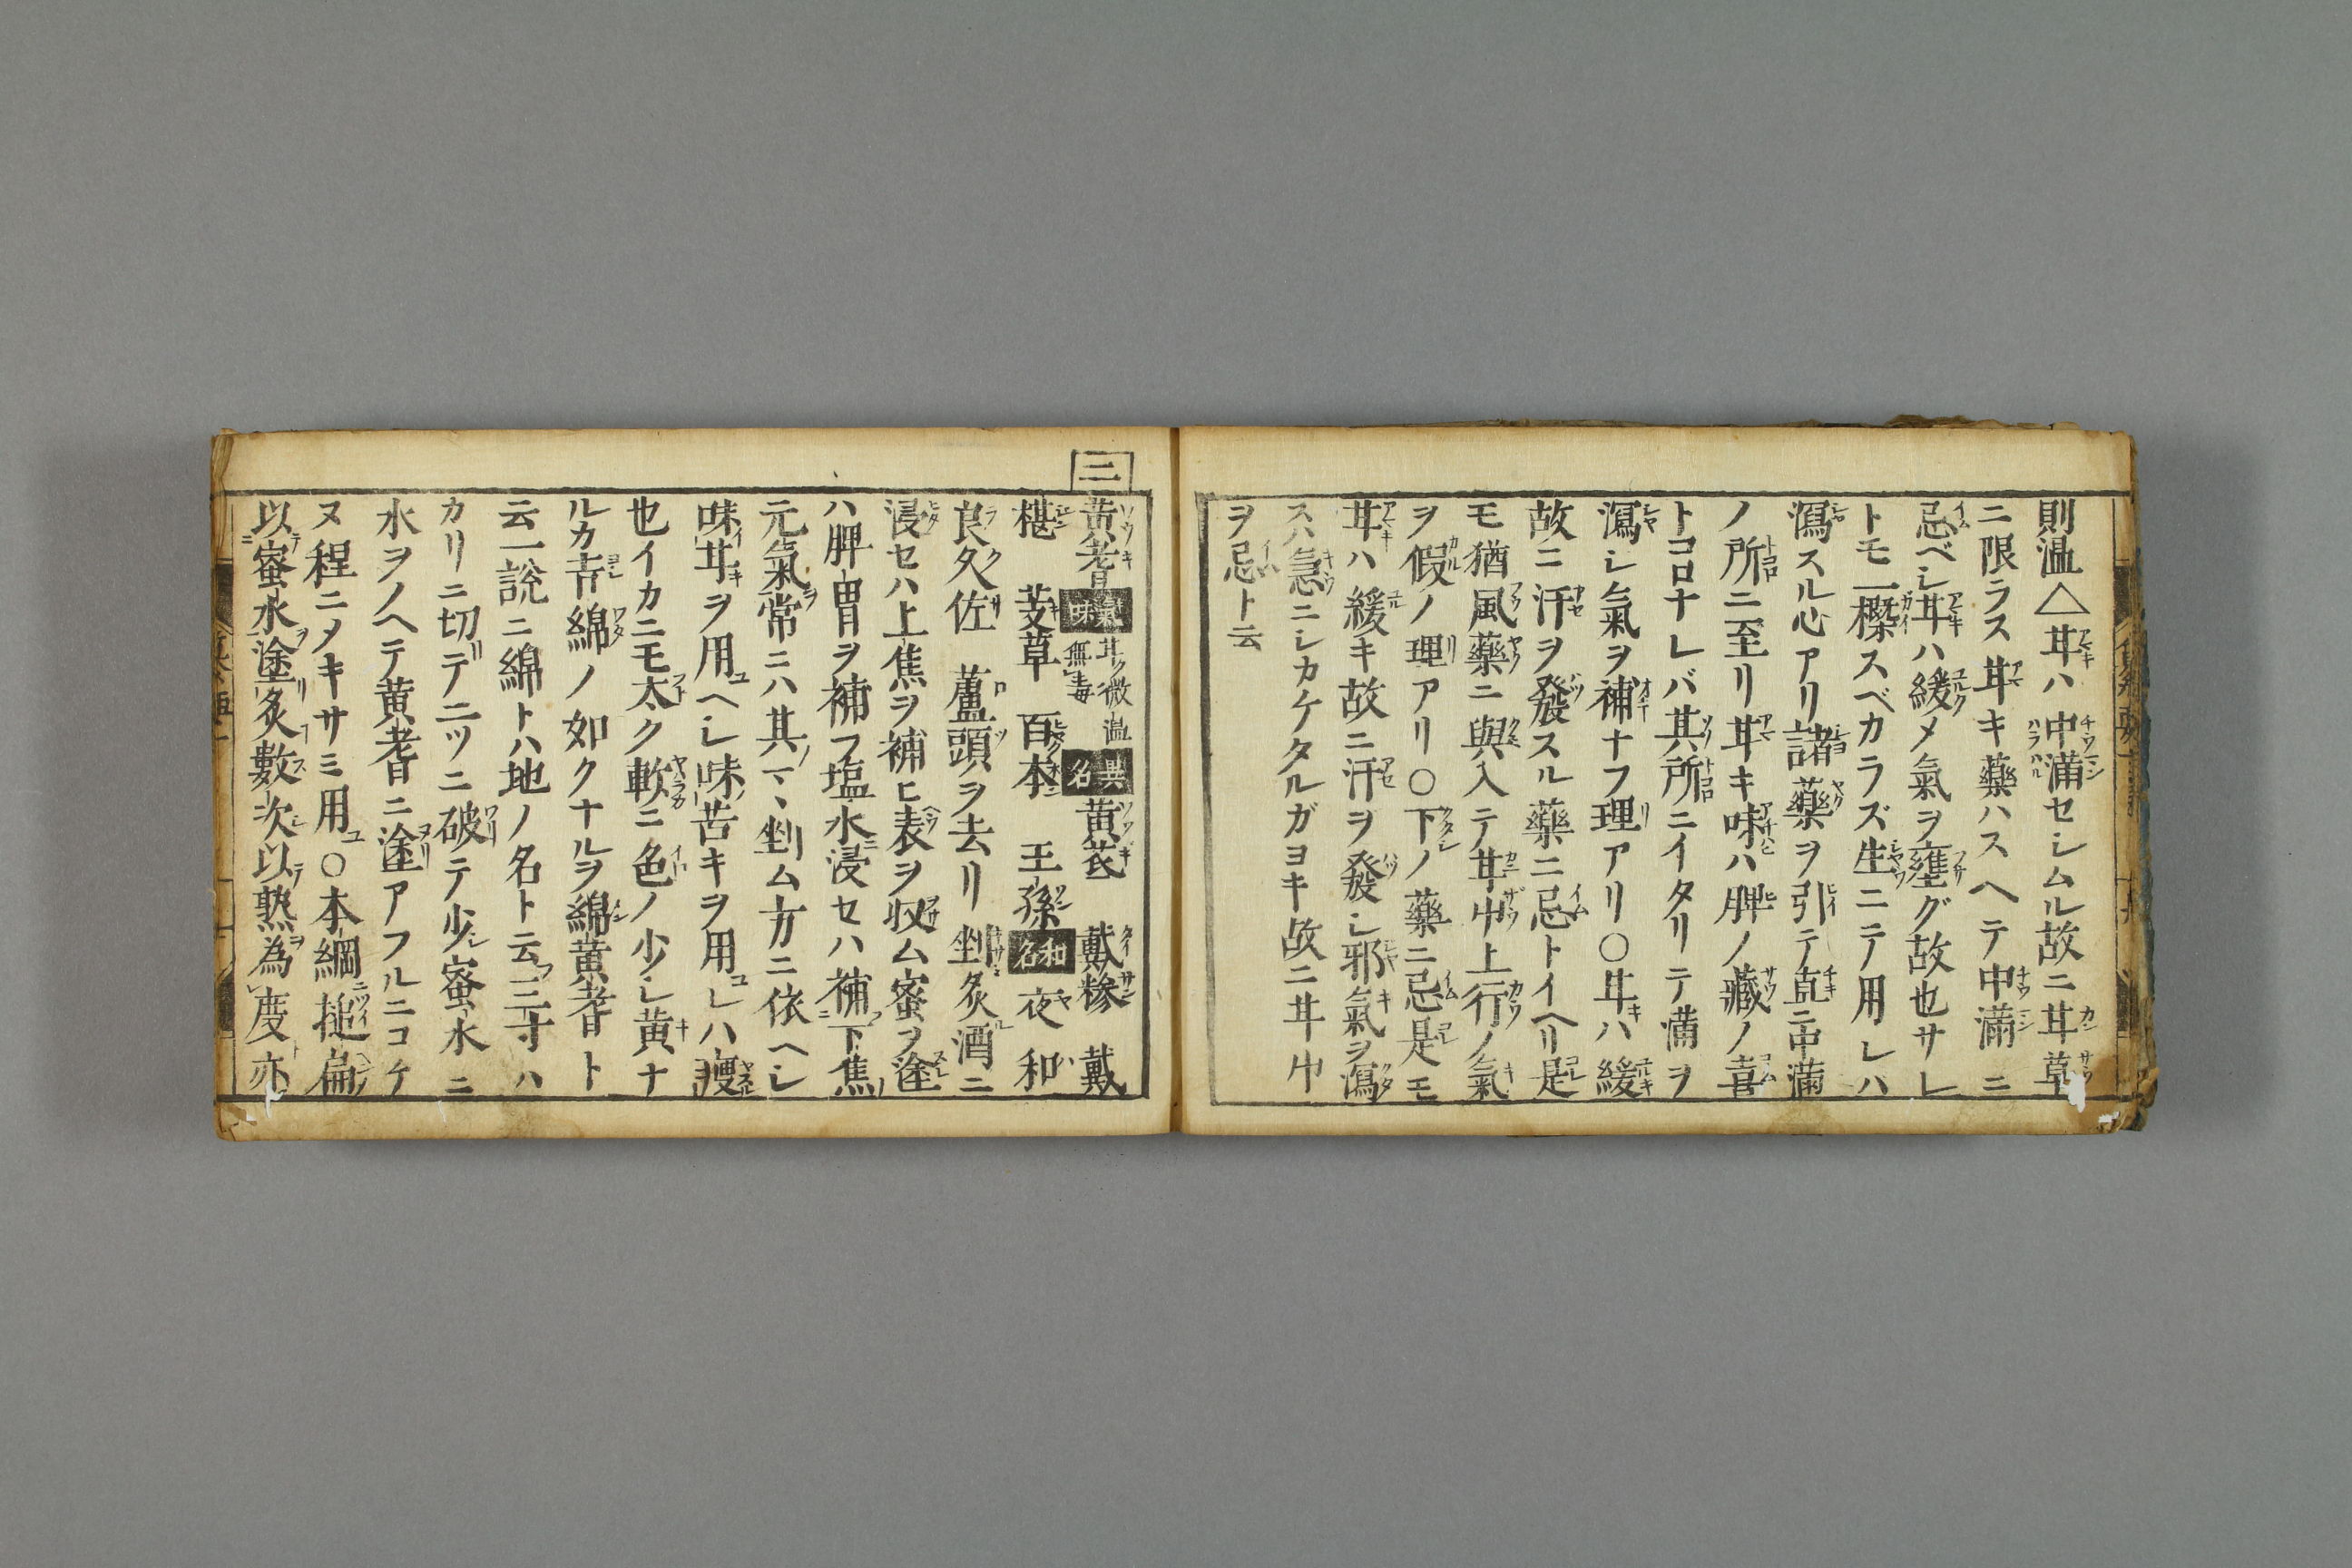 則温△甘ハ中満セシムル故ニ甘草
ニ限ラス甘キ藥ハスヘテ中満ニ
忌ベシ甘ハ緩メ氣ヲ壅グ故也サレ
トモ一槩スベカラズ生ニテ用レハ
瀉スル心アリ諸藥ヲ引テ直ニ中滿
ノ所ニ至リ甘キ味ハ脾ノ藏ノ喜
トコロナレバ其所ニイタリテ満ヲ
瀉シ氣ヲ補ナフ理アリ○甘ハ緩
故ニ汗ヲ發スル藥ニ忌トイヘリ是
モ猶風藥ニ與入テ甘中上行ノ氣
ヲ假ノ理アリ○下ノ藥ニ忌是モ
甘ハ緩キ故ニ汗ヲ發シ邪氣ヲ瀉
スハ急ニシカケタルガヨキ故ニ甘中
ヲ忌ト云
三
黄耆 氣味 甘ク微温無毒 異名 黄芪 戴糝 戴
椹 芰草 百本 王孫 和名 夜和
良久佐 蘆頭ヲ去リ剉炙酒ニ
浸セハ上焦ヲ補ヒ表ヲ収ム蜜ヲ塗
ハ脾胃ヲ補フ塩水浸セハ補下焦
元氣常ニハ其マヽ剉ム方ニ依ヘシ
味甘ヲ用ヘシ味苦キヲ用レハ痩
也イカニモ太ク軟ニ色ノ少シ黄ナ
ルカ吉綿ノ如クナルヲ綿黄耆ト
云一說ニ綿トハ地ノ名ト云三寸ハ
カリニ切テ二ツニ破テ少蜜水ニ
水ヲノヘテ黄耆ニ塗アフルニコケ
ヌ程ニメキサミ用○本綱搥扁
以蜜水塗炙數次以熟為度亦